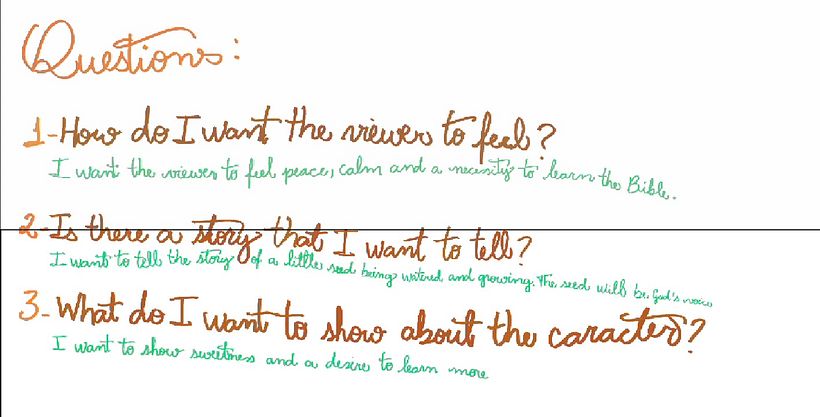 Questions:
1-How do I want the viewer to feel?
I want the viewer to feel peace, calm and a necessity to learn the Bible.
2-Is there a story that I want to tell?
I want to tell the story of a little seed being watered and growing. The seed will be God's voice
3-What do I want to show about the caracter?
I want to show sweetness and a desire to learn more